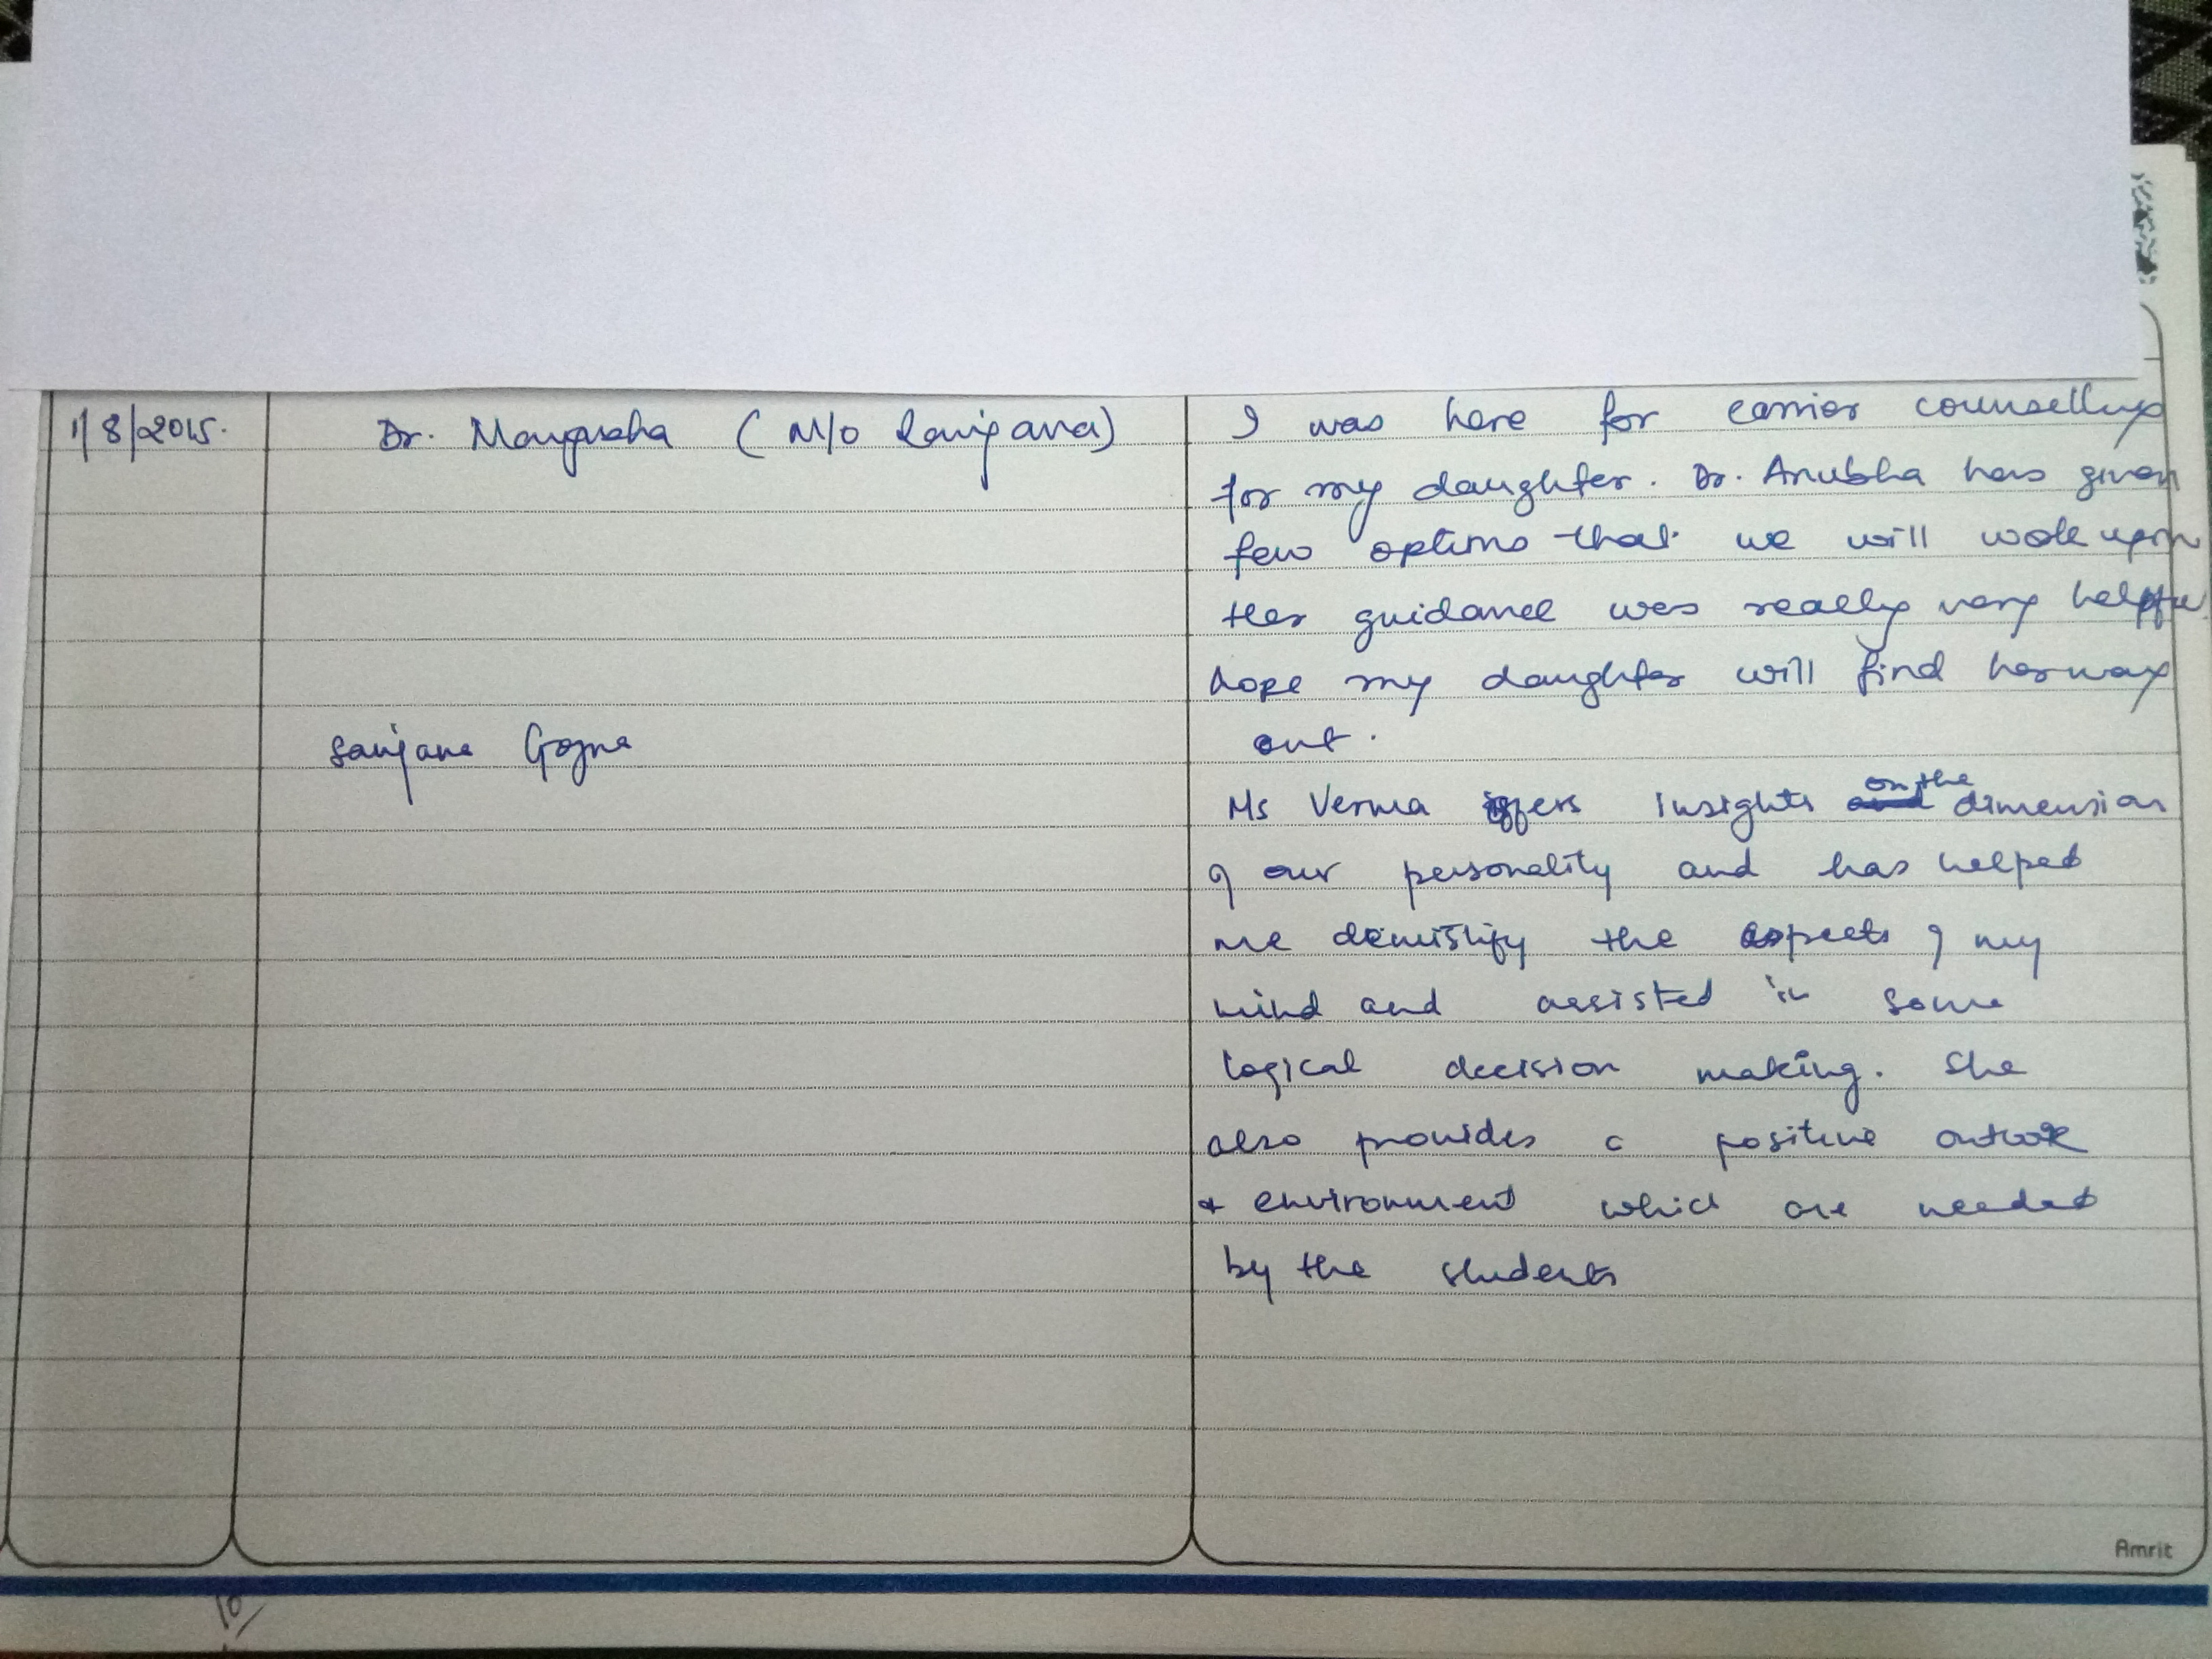 1/8/2015.
Dr. (M/o Sanjana)
I was here for carrier counselling
for my daughter. Dr. Anubha has given
few options that we will work upon
Her guidance was really very helpful
hope my daughter will find her way
out.
Sanjana Gogna
Ms Verma offers insights on the dimension
of our personality and has helped
me demistify the aspects of my
mind and assisted in some
logical decision making. She
also provides a positive outlook
+ environment which are needed
by the students
Amrit
10/